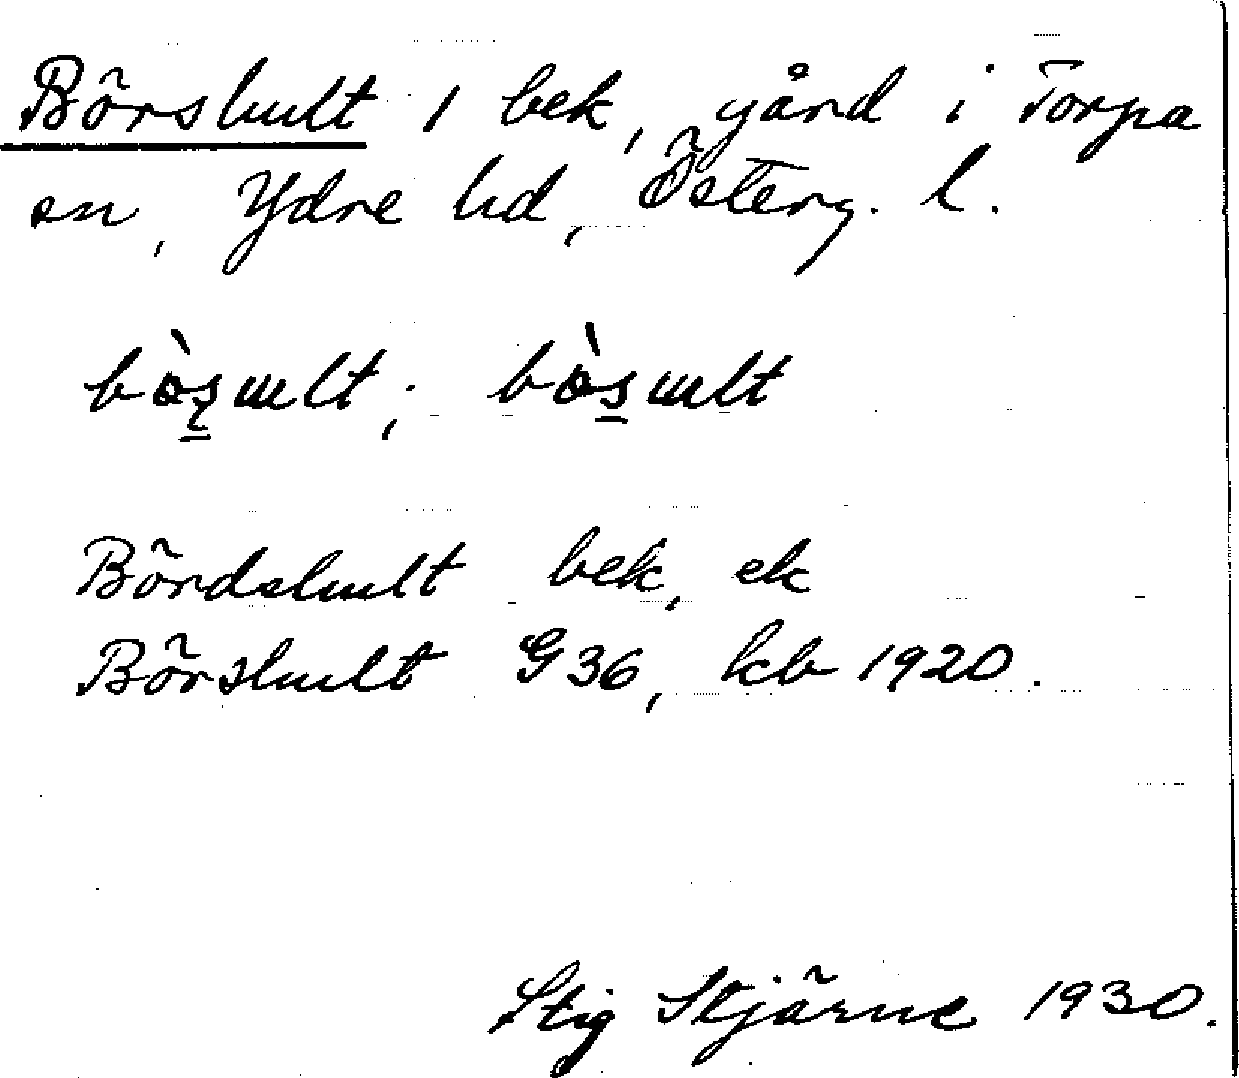 Börshult 1 bek, gård i Torpa
sn, Ydre hd, Österg. l.
Bördshult bek, ek
Börshult G 36, kb 1920.
Stig Stjärne 1930.